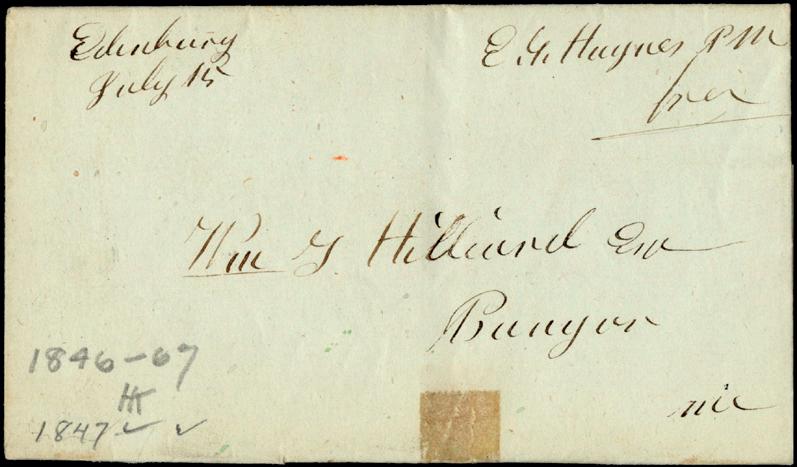 Edinburg
July 15
E. G. Haynes PM
free
Wm T. Hilliard Esq
Bangor
Me
1846-67
1847